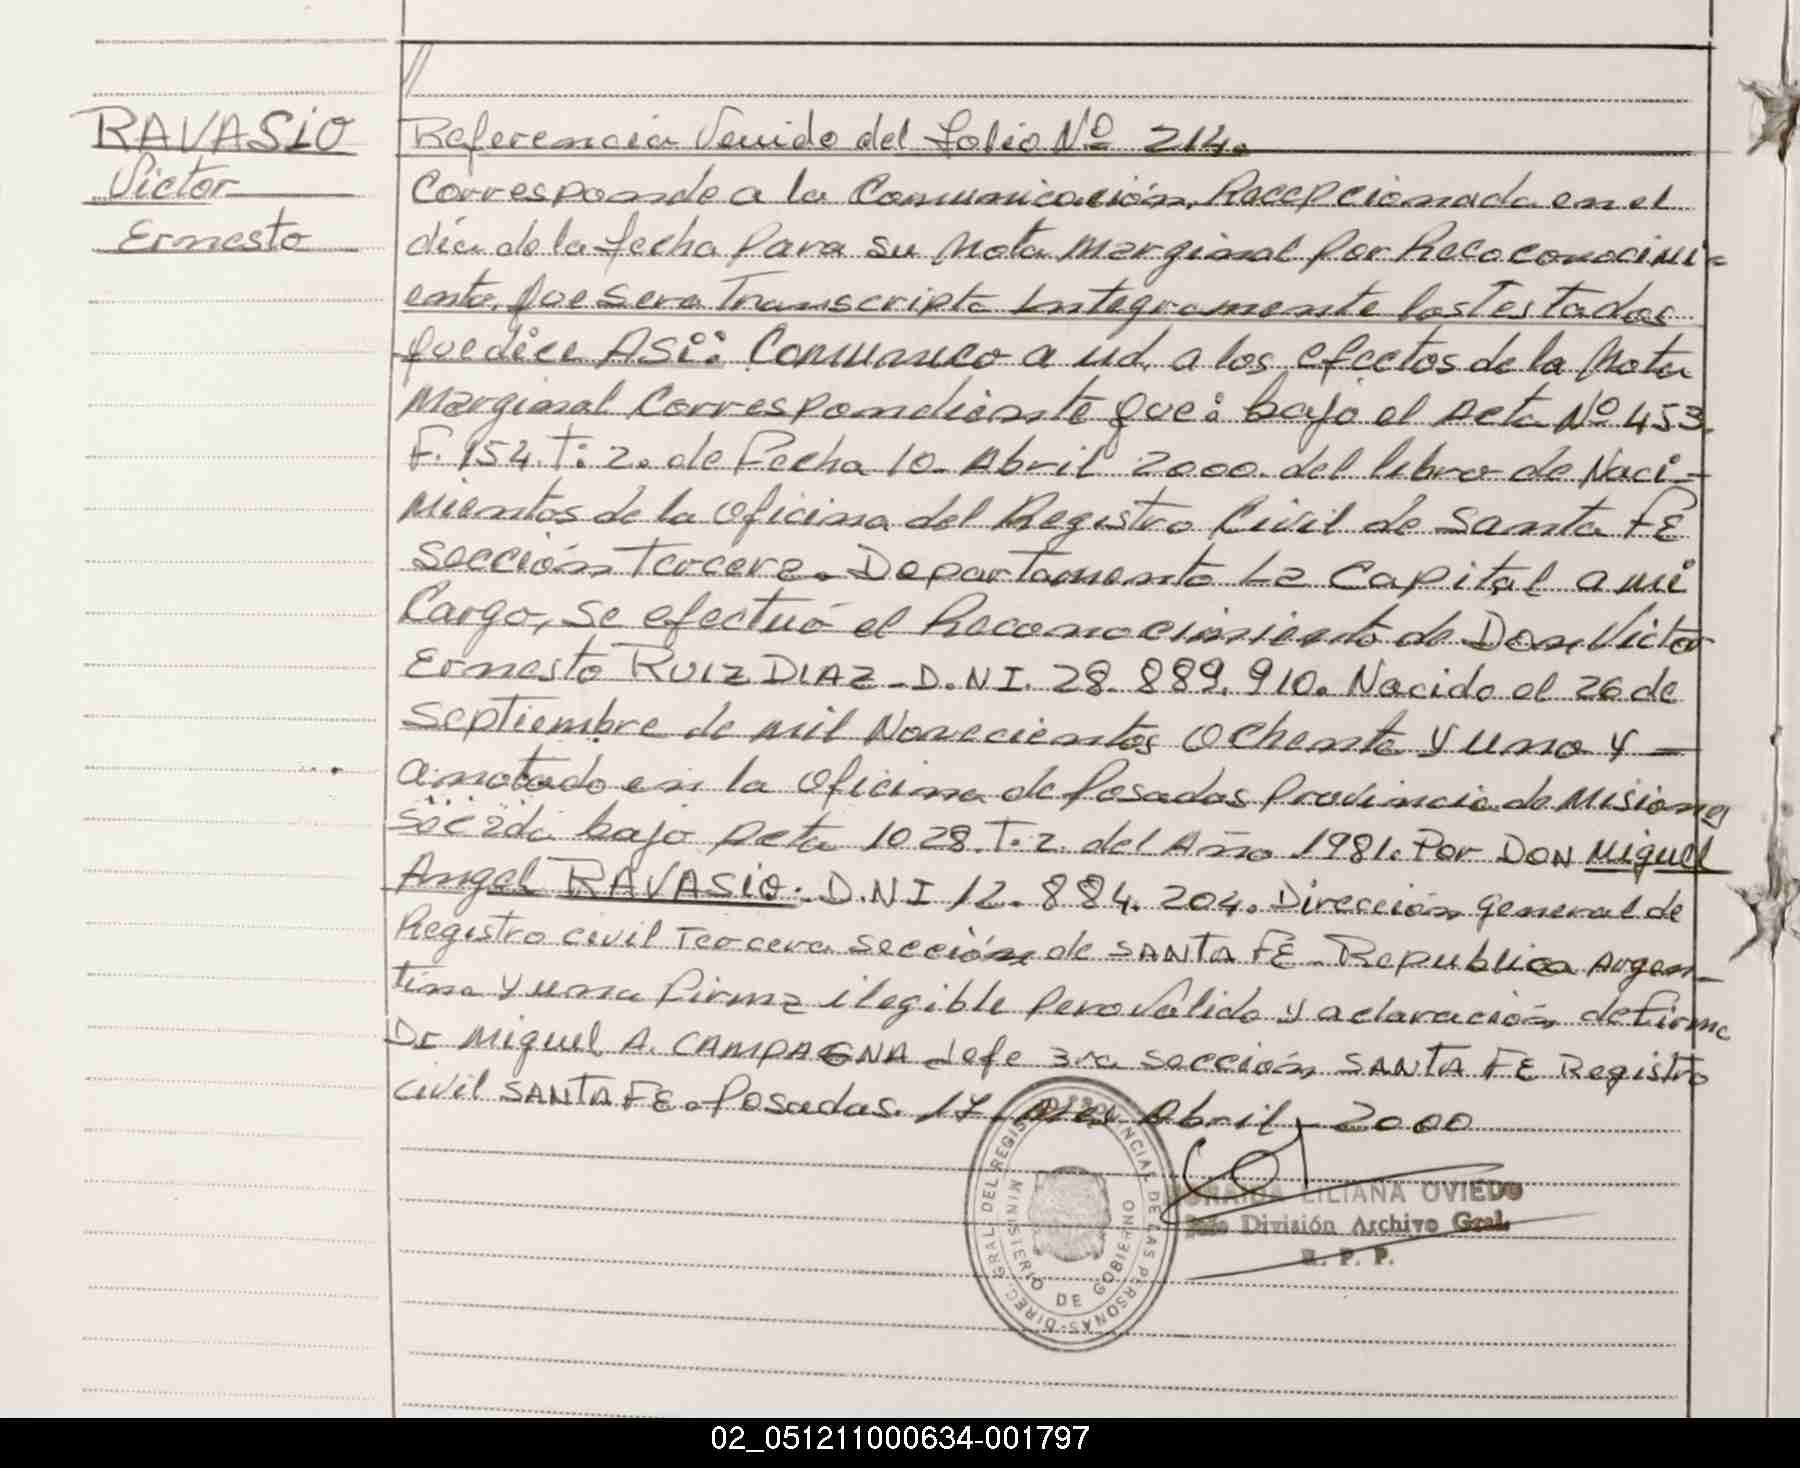 RAVASIO
Victor
Ernesto
Referencia Venido del folio Nº 214.
Corresponde a la Comunicación, Recepcionada en el
día de la fecha para su Nota Marginal por Recoconocimi-
ento, que sera Transcripta Integramente los Testados
que dice ASi: Comunico a ud, a los efectos de la Nota
Marginal Correspondiente que: bajo el Acta Nº 453.
F. 154. T: 2. de Fecha 10. Abril 2000. del libro de Naci-
mientos de la oficina del Registro Civil de Santa FE
Sección Tercera. Departamento La Capital a mi
Cargo, se efectuó el Reconocimiento de Don Victor
Ernesto RUIZ DIAZ - D.N.I. 28.889.910. Nacido el 26 de
Septiembre de mil Novecientos Ochenta y uno y -
anotado en la oficina de Posadas Provincia de Misiones
Sec 2da bajo Acta 1028. T. 2. del Año 1981. Por DON Miguel
Angel RAVASIO. D.N I 12.884.204. Dirección General de
Registro civil Tercera sección de SANTA FE - Republica Argen-
tina y una firma ilegible pero válido y aclaración de firma
Dr Miguel A. CAMPAGNA Jefe 3ra sección SANTA FE Registro
civil SANTA FE. Posadas. 17 Abril - 2000
DIREC. GRAL. DEL REGISTRO PROVINCIAL DE LAS PERSONAS
MINISTERIO DE GOBIERNO
LILIANA OVIEDO
Jefe División Archivo Gral.
R. P. P.
02_051211000634-001797